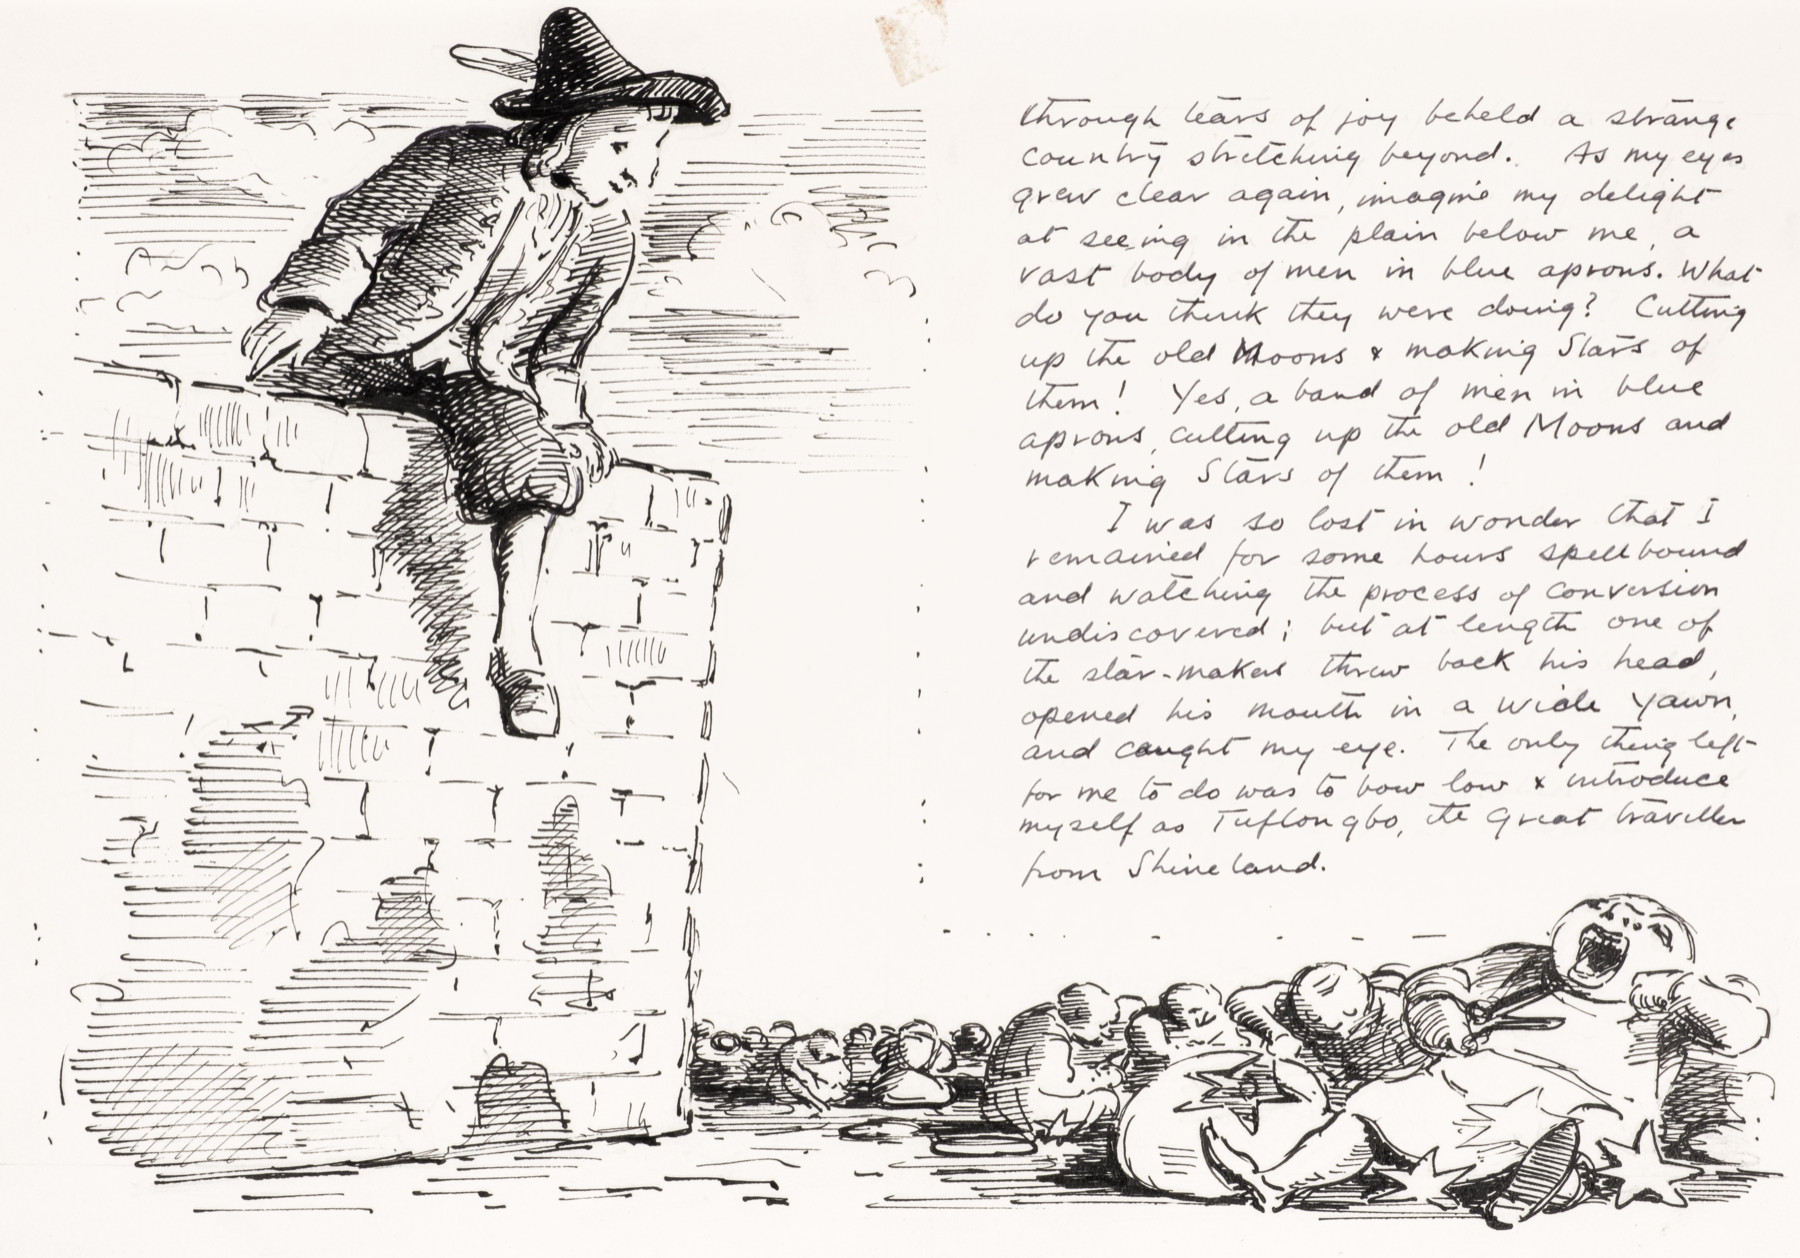 through tears of joy beheld a strange
country stretching beyond. As my eyes
grew clear again, imagine my delight
at seeing in the plain below me, a
vast body of men in blue aprons. What
do you think they were doing? Cutting
up the old Moons & making Stars of
them! Yes, a band of men in blue
aprons, cutting up the old Moons and
making Stars of them!
I was so lost in wonder that I
remained for some hours spellbound
and watching the process of conversion
undiscovered; but at length one of
the star-makers threw back his head,
opened his mouth in a wide yawn,
and caught my eye. The only thing left
for me to do was to bow low & introduce
myself as Tuflongbo, the Great traveller
from Shineland.